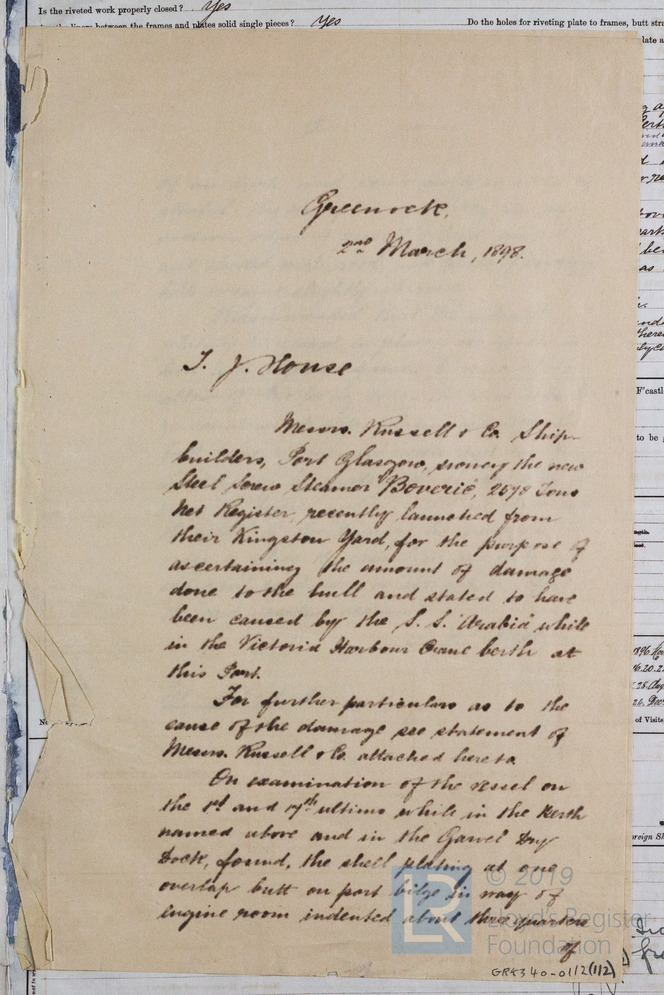 Is the riveted work properly closed? Yes
liners between the frames and plates solid single pieces? Yes
Do the holes for riveting plate to frames, butt
Greenock,
2nd March, 1898.
J. House
Messrs. Russell & Co. Ship-
builders, Port Glasgow, the new
Steel Screw Steamer "Boveric", 2578 Tons
Net Register, recently launched from
their Kingston Yard, for the purpose of
ascertaining the amount of damage
done to the hull and stated to have
been caused by the S.S. "Arabia" while
in the Victoria Harbour Crane berth at
this Port.
For further particulars as to the
cause of the damage see statement of
Messrs. Russell & Co. attached hereto.
On examination of the vessel on
the and 17th ultimo while in the berth
named above and in the Garvel Dry
Dock, found, the shell plating at one
overlap butt on port bilge in way of
engine room indented about three quarters
of
© 2019
Lloyd's Register
Foundation
GRK340-0112(112)
F'castl
to be
of Visits